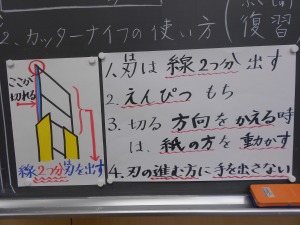 2.カッターナイフの使い方
復習
ここが
切れる
線2つ分刃を出す
1.刃は線2つ分出す
2.えんぴつもち
3.切る方向をかえる時
は、紙の方を動かす
4.刃の進む方に手を出さない